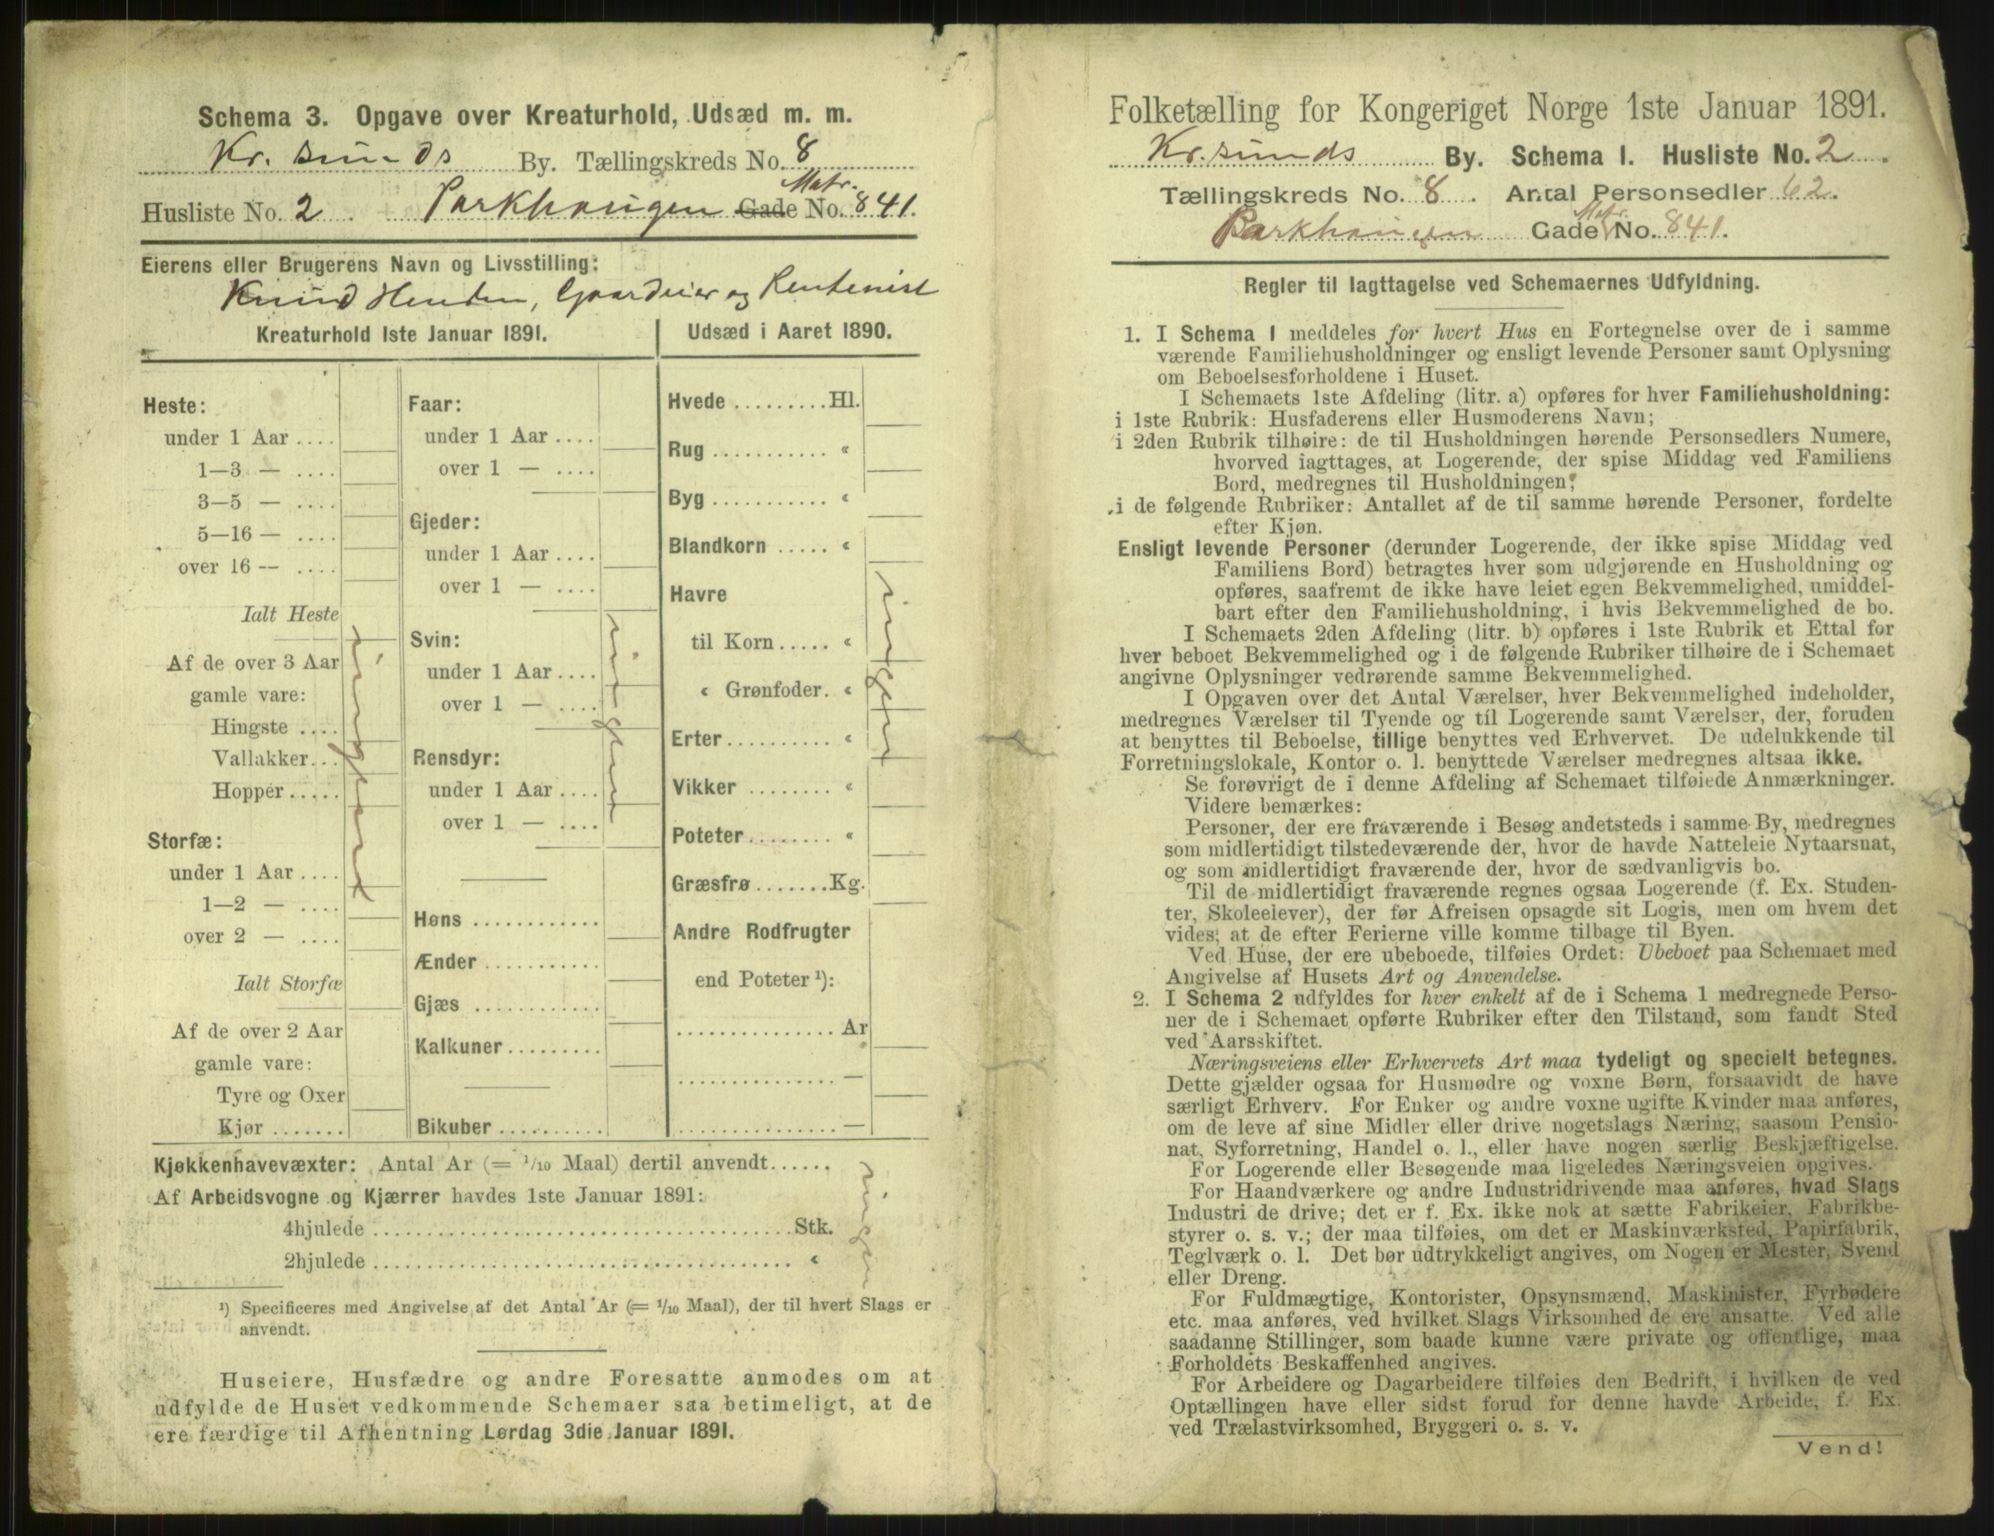 Schema 3. Opgave over Kreaturhold, Udsæd m. m.
Kr. sunds By. Tællingskreds No. 8
Husliste No. 2 Parkhaugen Gade Matr. No. 841.
Eierens eller Brugerens Navn og Livsstilling:
Knud Henden, Gaardeier og Rentenist
Kreaturhold 1ste Januar 1891.
Heste:
under 1 Aar ....
1—3 — ....
3—5 — ....
5—16 — ....
over 16 — ....
Ialt Heste
Af de over 3 Aar
gamle vare:
Hingste ....
Vallakker...
Hopper .....
Storfæ:
under 1 Aar ....
1—2 — ....
over 2 — ....
Ialt Storfæ
Af de over 2 Aar
gamle vare:
Tyre og Oxer
Kjør .......
ingen
Faar:
under 1 Aar ....
over 1 — ....
Gjeder:
under 1 Aar ....
over 1 — ....
Svin:
under 1 Aar ....
over 1 — ....
Rensdyr:
under 1 Aar ....
over 1 — ....
Høns ............
Ænder ...........
Gjæs ............
Kalkuner.........
Bikuber ..........
ingen
Udsæd i Aaret 1890.
Hvede .........Hl.
Rug ........... «
Byg ........... «
Blandkorn ..... «
Havre
til Korn ..... «
« Grønfoder. «
Erter.......... «
Vikker ........ «
Poteter........ «
Græsfrø .......Kg.
Andre Rodfrugter
end Poteter ¹):
............... Ar
............... —
............... —
ingen
Kjøkkenhavevæxter: Antal Ar (= 1/10 Maal) dertil anvendt......
Af Arbeidsvogne og Kjærrer havdes 1ste Januar 1891:
4hjulede ........................................ Stk.
2hjulede ........................................ «
ingen
¹) Specificeres med Angivelse af det Antal Ar (= 1/10 Maal), der til hvert Slags er
anvendt.
Huseiere, Husfædre og andre Foresatte anmodes om at
udfylde de Huset vedkommende Schemaer saa betimeligt, at de
ere færdige til Afhentning Lørdag 3die Januar 1891.
Folketælling for Kongeriget Norge 1ste Januar 1891.
Kr. sunds By. Schema 1. Husliste No. 2.
Tællingskreds No. 8. Antal Personsedler 62.
Parkhaugen Gade Matr. No. 841.
Regler til Iagttagelse ved Schemaernes Udfyldning.
1. I Schema 1 meddeles for hvert Hus en Fortegnelse over de i samme
værende Familiehusholdninger og ensligt levende Personer samt Oplysning
om Beboelsesforholdene i Huset.
I Schemaets 1ste Afdeling (litr. a) opføres for hver Familiehusholdning:
i 1ste Rubrik: Husfaderens eller Husmoderens Navn;
i 2den Rubrik tilhøire: de til Husholdningen hørende Personsedlers Numere,
hvorved iagttages, at Logerende, der spise Middag ved Familiens
Bord, medregnes til Husholdningen;
i de følgende Rubriker: Antallet af de til samme hørende Personer, fordelte
efter Kjøn.
Ensligt levende Personer (derunder Logerende, der ikke spise Middag ved
Familiens Bord) betragtes hver som udgjørende en Husholdning og
opføres, saafremt de ikke have leiet egen Bekvemmelighed, umiddel-
bart efter den Familiehusholdning, i hvis Bekvemmelighed de bo.
I Schemaets 2den Afdeling (litr. b) opføres i 1ste Rubrik et Ettal for
hver beboet Bekvemmelighed og i de følgende Rubriker tilhøire de i Schemaet
angivne Oplysninger vedrørende samme Bekvemmelighed.
I Opgaven over det Antal Værelser, hver Bekvemmelighed indeholder,
medregnes Værelser til Tyende og til Logerende samt Værelser, der, foruden
at benyttes til Beboelse, tillige benyttes ved Erhvervet. De udelukkende til
Forretningslokale, Kontor o. l. benyttede Værelser medregnes altsaa ikke.
Se forøvrigt de i denne Afdeling af Schemaet tilføiede Anmærkninger.
Videre bemærkes:
Personer, der ere fraværende i Besøg andetsteds i samme By, medregnes
som midlertidigt tilstedeværende der, hvor de havde Natteleie Nytaarsnat,
og som midlertidigt fraværende der, hvor de sædvanligvis bo.
Til de midlertidigt fraværende regnes ogsaa Logerende (f. Ex. Studen-
ter, Skoleelever), der før Afreisen opsagde sit Logis, men om hvem det
vides, at de efter Ferierne ville komme tilbage til Byen.
Ved Huse, der ere ubeboede, tilføies Ordet: Ubeboet paa Schemaet med
Angivelse af Husets Art og Anvendelse.
2. I Schema 2 udfyldes for hver enkelt af de i Schema 1 medregnede Perso-
ner de i Schemaet opførte Rubriker efter den Tilstand, som fandt Sted
ved Aarsskiftet.
Næringsveiens eller Erhvervets Art maa tydeligt og specielt betegnes.
Dette gjælder ogsaa for Husmødre og voxne Børn, forsaavidt de have
særligt Erhverv. For Enker og andre voxne ugifte Kvinder maa anføres,
om de leve af sine Midler eller drive nogetslags Næring, saasom Pensio-
nat, Syforretning, Handel o. l., eller have nogen særlig Beskjæftigelse.
For Logerende eller Besøgende maa ligeledes Næringsveien opgives.
For Haandværkere og andre Industridrivende maa anføres, hvad Slags
Industri de drive; det er f. Ex. ikke nok at sætte Fabrikeier, Fabrikbe-
styrer o. s. v.; der maa tilføies, om det er Maskinværksted, Papirfabrik,
Teglværk o. l. Det bør udtrykkeligt angives, om Nogen er Mester, Svend
eller Dreng.
For Fuldmægtige, Kontorister, Opsynsmænd, Maskinister, Fyrbødere
etc. maa anføres, ved hvilket Slags Virksomhed de ere ansatte. Ved alle
saadanne Stillinger, som baade kunne være private og offentlige, maa
Forholdets Beskaffenhed angives.
For Arbeidere og Dagarbeidere tilføies den Bedrift, i hvilken de ved
Optællingen have eller sidst forud for denne havde Arbeide, f. Ex.
ved Trælastvirksomhed, Bryggeri o. s. v.
Vend!